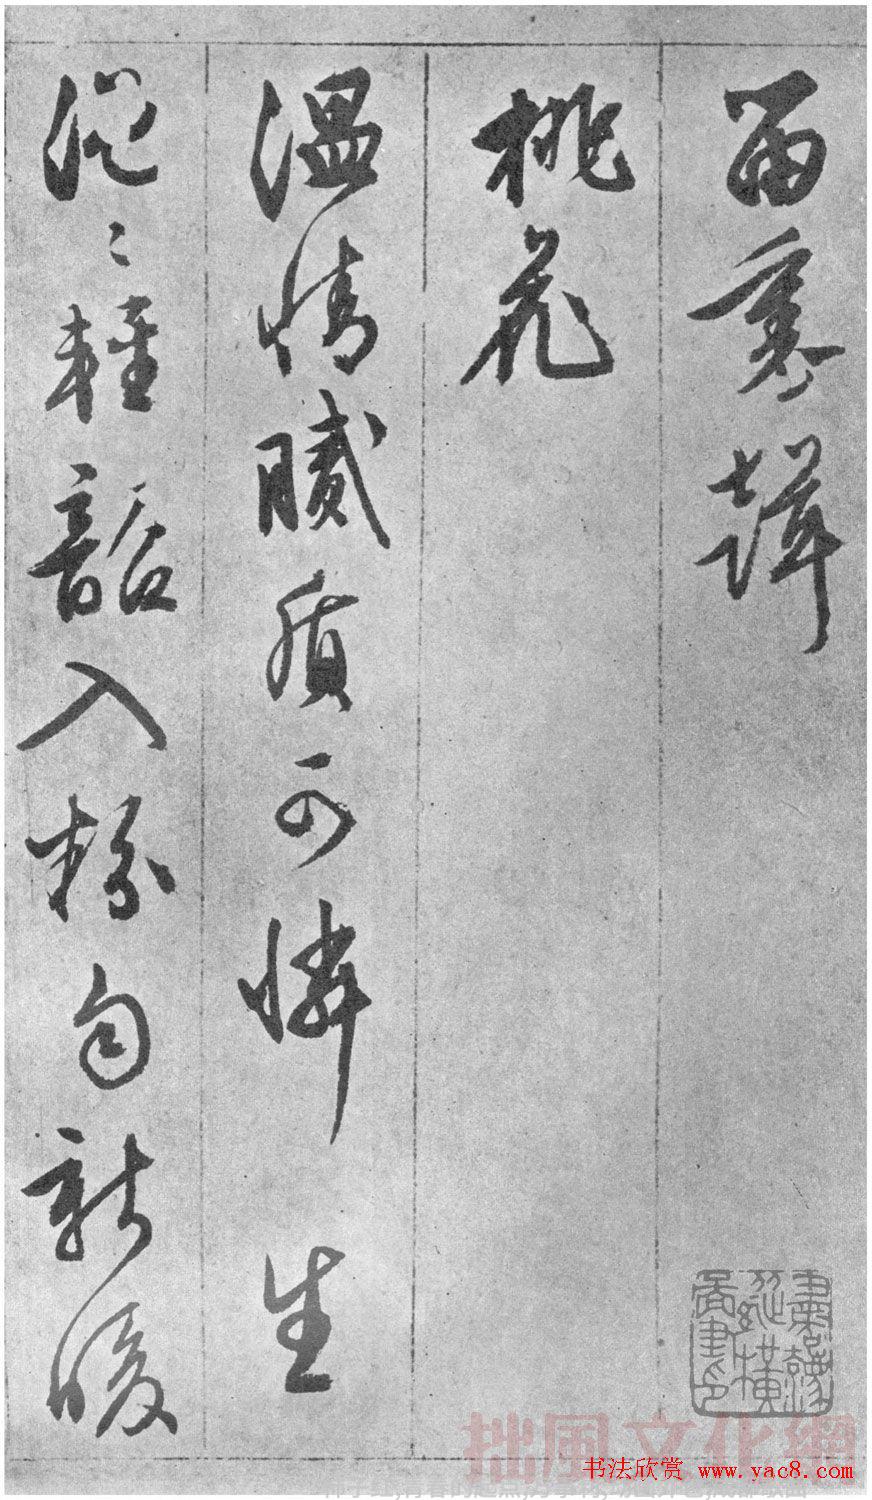 寒
桃花
溫情膩質可憐生
浥〻輕韶入粉勻新暖
拙風文化網
书法欣赏 www.yac8.com